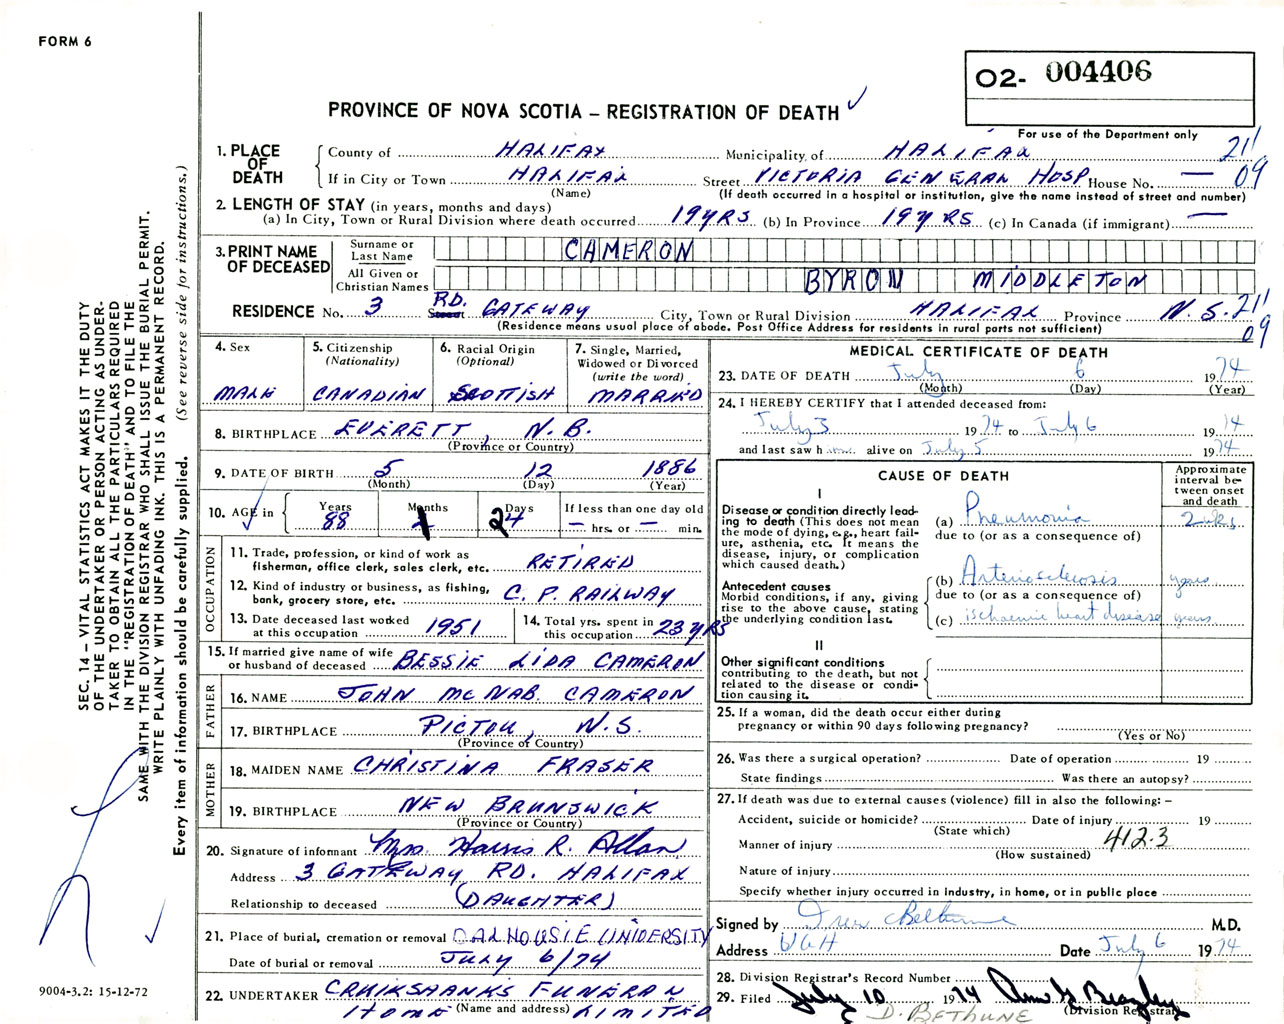 FORM 6
O2- 004406
PROVINCE OF NOVA SCOTIA – REGISTRATION OF DEATH
For use of the Department only
1. PLACE OF DEATH
County of HALIFAX Municipality of HALIFAX 21
If in City or Town HALIFAX Street VICTORIA GENERAL HOSP House No. — 09
(Name) (If death occurred in a hospital or institution, give the name instead of street and number)
2. LENGTH OF STAY (in years, months and days)
(a) In City, Town or Rural Division where death occurred 19 YRS (b) In Province 19 YRS (c) In Canada (if immigrant) —
3. PRINT NAME OF DECEASED
Surname or Last Name CAMERON
All Given or Christian Names BYRON MIDDLETON
RESIDENCE No. 3 Street RD. GATEWAY City, Town or Rural Division HALIFAX Province N.S. 21
09
(Residence means usual place of abode. Post Office Address for residents in rural parts not sufficient)
4. Sex MALE
5. Citizenship (Nationality) CANADIAN
6. Racial Origin (Optional) SCOTTISH
7. Single, Married, Widowed or Divorced (write the word) MARRIED
8. BIRTHPLACE EVERETT, N.B.
(Province or Country)
9. DATE OF BIRTH 5 12 1886
(Month) (Day) (Year)
10. AGE in Years 88 Months 1 Days 24 If less than one day old — hrs. or — min.
OCCUPATION
11. Trade, profession, or kind of work as fisherman, office clerk, sales clerk, etc. RETIRED
12. Kind of industry or business, as fishing, bank, grocery store, etc. C. P. RAILWAY
13. Date deceased last worked at this occupation 1951
14. Total yrs. spent in this occupation 23 YRS
15. If married give name of wife or husband of deceased BESSIE LIDA CAMERON
FATHER
16. NAME JOHN MCNAB CAMERON
17. BIRTHPLACE PICTOU, N.S.
(Province or Country)
MOTHER
18. MAIDEN NAME CHRISTINA FRASER
19. BIRTHPLACE NEW BRUNSWICK
(Province or Country)
20. Signature of informant Mrs. Harris R. Allan
Address 3 GATEWAY RD. HALIFAX
Relationship to deceased (DAUGHTER)
21. Place of burial, cremation or removal DALHOUSIE UNIVERSITY
Date of burial or removal JULY 6/74
22. UNDERTAKER CRUIKSHANKS FUNERAL
HOME (Name and address) LIMITED
MEDICAL CERTIFICATE OF DEATH
23. DATE OF DEATH July 6 1974
(Month) (Day) (Year)
24. I HEREBY CERTIFY that I attended deceased from:
July 3 1974 to July 6 1974
and last saw h alive on July 5 1974
CAUSE OF DEATH
Approximate interval between onset and death
I
Disease or condition directly leading to death (This does not mean the mode of dying, e.g., heart failure, asthenia, etc. It means the disease, injury, or complication which caused death.)
(a) Pneumonia 2 wks.
due to (or as a consequence of)
Antecedent causes
Morbid conditions, if any, giving rise to the above cause, stating the underlying condition last.
(b) Arteriosclerosis years
due to (or as a consequence of)
(c) ischaemic heart disease years
II
Other significant conditions contributing to the death, but not related to the disease or condition causing it.
25. If a woman, did the death occur either during pregnancy or within 90 days following pregnancy?
(Yes or No)
26. Was there a surgical operation? Date of operation 19
State findings Was there an autopsy?
27. If death was due to external causes (violence) fill in also the following: –
Accident, suicide or homicide? Date of injury 19
(State which) 412.3
Manner of injury
(How sustained)
Nature of injury
Specify whether injury occurred in industry, in home, or in public place
Signed by Drew Bethune M.D.
Address VGH Date July 6 1974
28. Division Registrar's Record Number
29. Filed July 10 1974
(Division Registrar)
D. BETHUNE
SEC. 14 – VITAL STATISTICS ACT MAKES IT THE DUTY
OF THE UNDERTAKER OR PERSON ACTING AS UNDER-
TAKER TO OBTAIN ALL THE PARTICULARS REQUIRED
IN THE "REGISTRATION OF DEATH" AND TO FILE THE
SAME WITH THE DIVISION REGISTRAR WHO SHALL ISSUE THE BURIAL PERMIT.
WRITE PLAINLY WITH UNFADING INK. THIS IS A PERMANENT RECORD.
Every item of information should be carefully supplied. (See reverse side for instructions.)
9004-3.2: 15-12-72